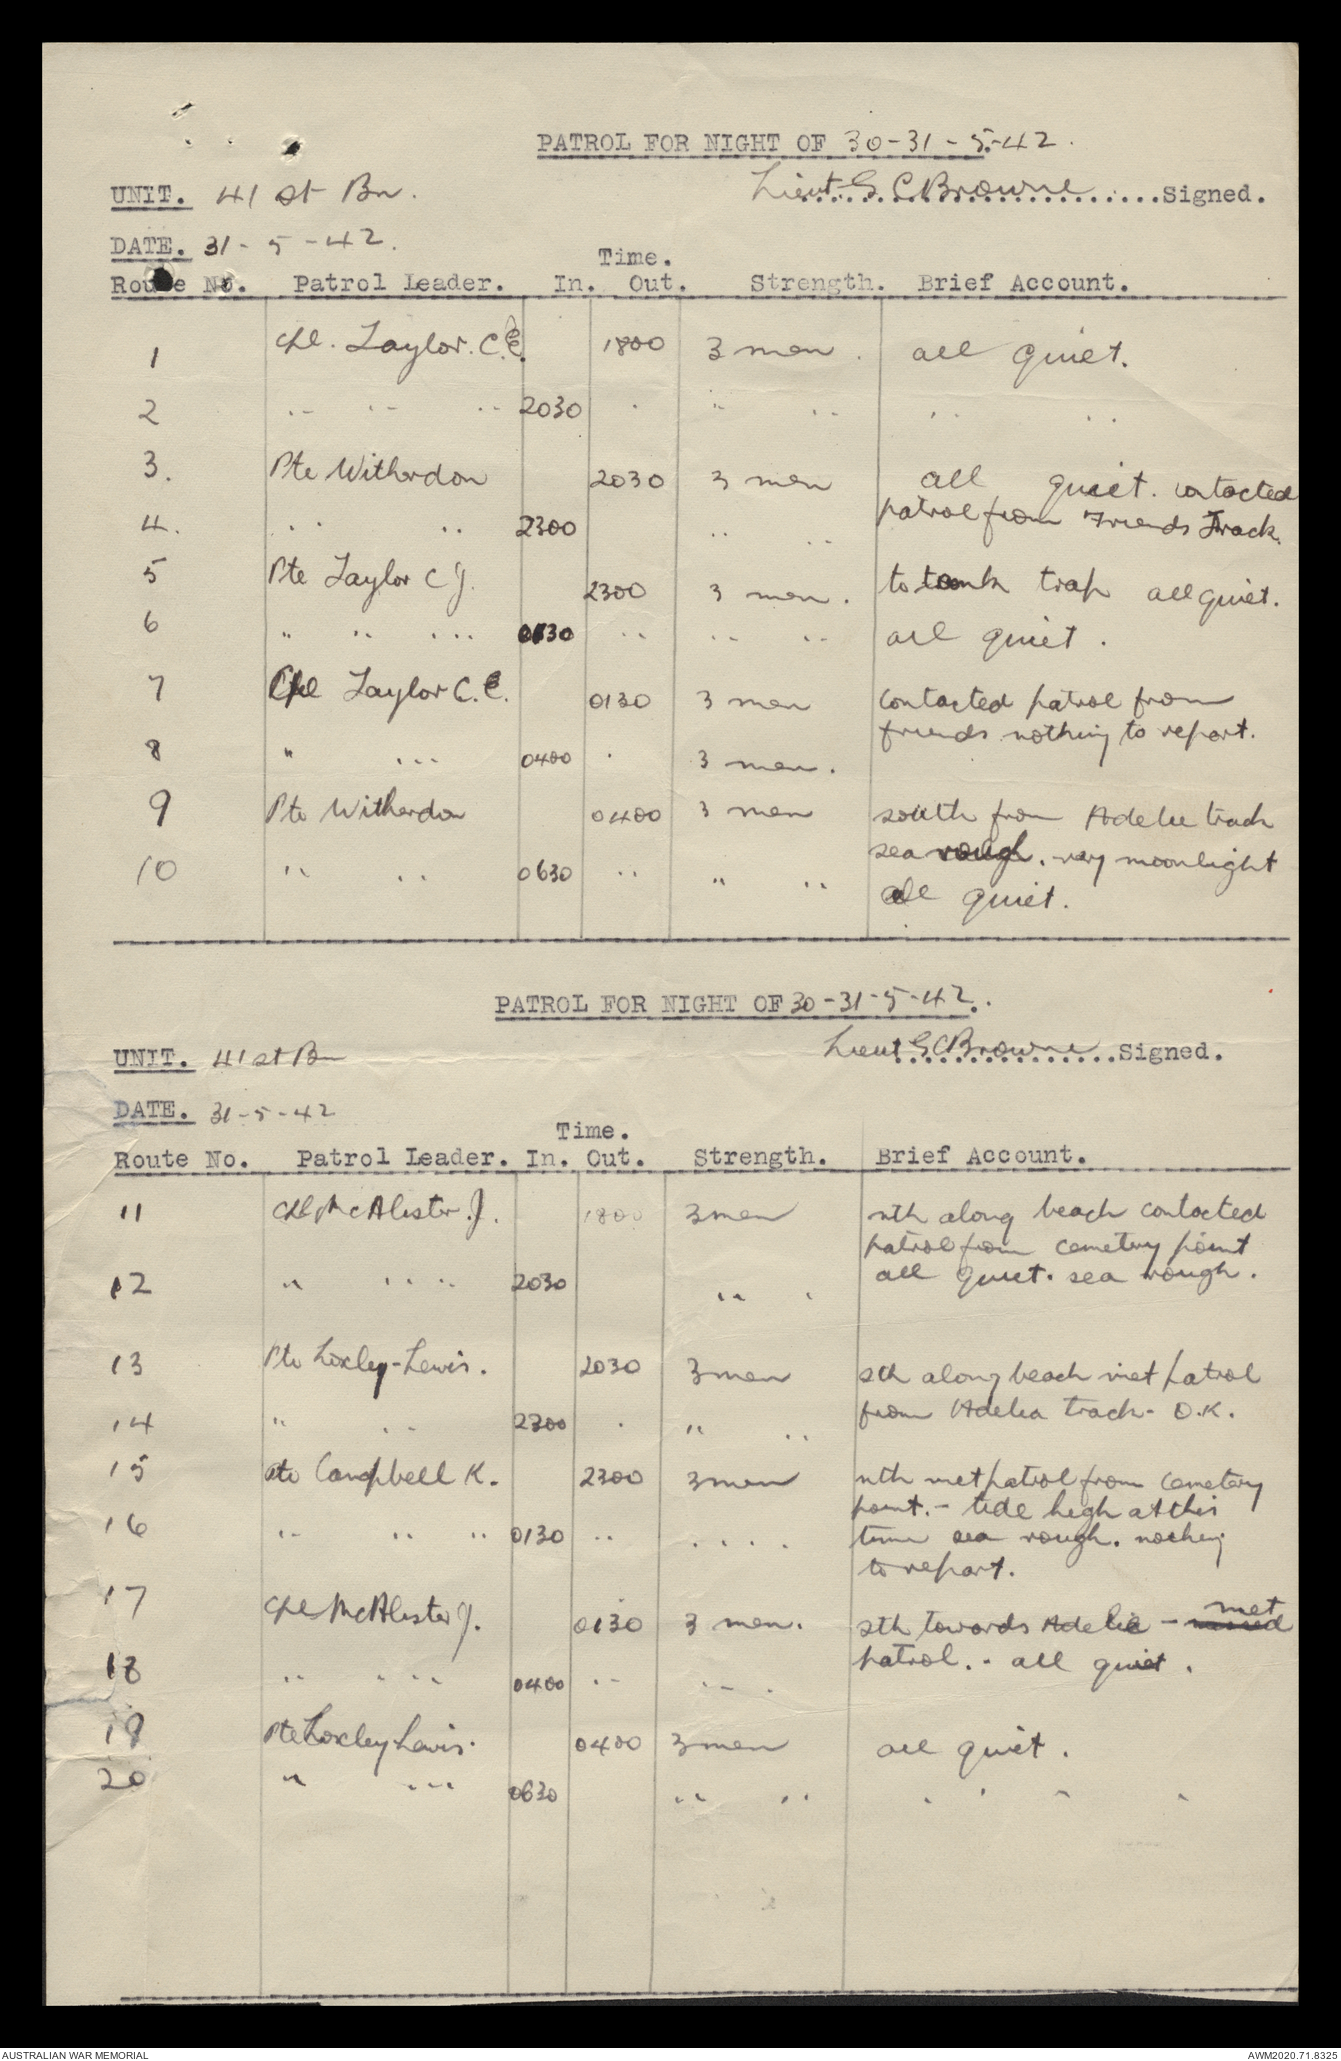 PATROL FOR NIGHT OF 30-31-5-42.
UNIT. 41st Bn.
Lieut G C Browne Signed.
DATE. 31-5-42.
Time.
Route No. Patrol Leader. In. Out. Strength. Brief Account.
1 Cpl. Taylor. C.E. 1800 3 men. all quiet.
2 " " " 2030 " " " " "
3. Pte Witherdon 2030 3 men all quiet. contacted
patrol from Friends Track.
4. " " 2300 " "
5 Pte Taylor C J. 2300 3 men. to tank trap all quiet.
6 " " " 0130 " " " all quiet.
7 Cpl Taylor C.E. 0130 3 men contacted patrol from
friends nothing to report.
8 " " 0400 " 3 men.
9 Pte Witherdon 0400 3 men south from Adelie track
sea rough. very moonlight
10 " " 0630 " " "
all quiet.
PATROL FOR NIGHT OF 30-31-5-42.
UNIT. 41st Bn
Lieut G C Browne Signed.
DATE. 31-5-42
Time.
Route No. Patrol Leader. In. Out. Strength. Brief Account.
11 Cpl McAlister. J. 1800 3 men nth along beach contacted
patrol from cemetery point
12 " " " 2030 " " all quiet. sea rough.
13 Pte Loxley-Lewis. 2030 3 men sth along beach met patrol
from Adelia track - O.K.
14 " " 2300 " " "
15 Pte Campbell K. 2300 3 men nth met patrol from cemetery
point. - tide high at this
16 " " " 0130 " " " time sea rough. nothing
to report.
17 Cpl McAlister J. 0130 3 men. sth towards Adelie - met
patrol. - all quiet.
18 " " " 0400 " " "
19 Pte Loxley Lewis. 0400 3 men all quiet.
20 " " 0630 " " " " " "
AUSTRALIAN WAR MEMORIAL
AWM2020.71.8325